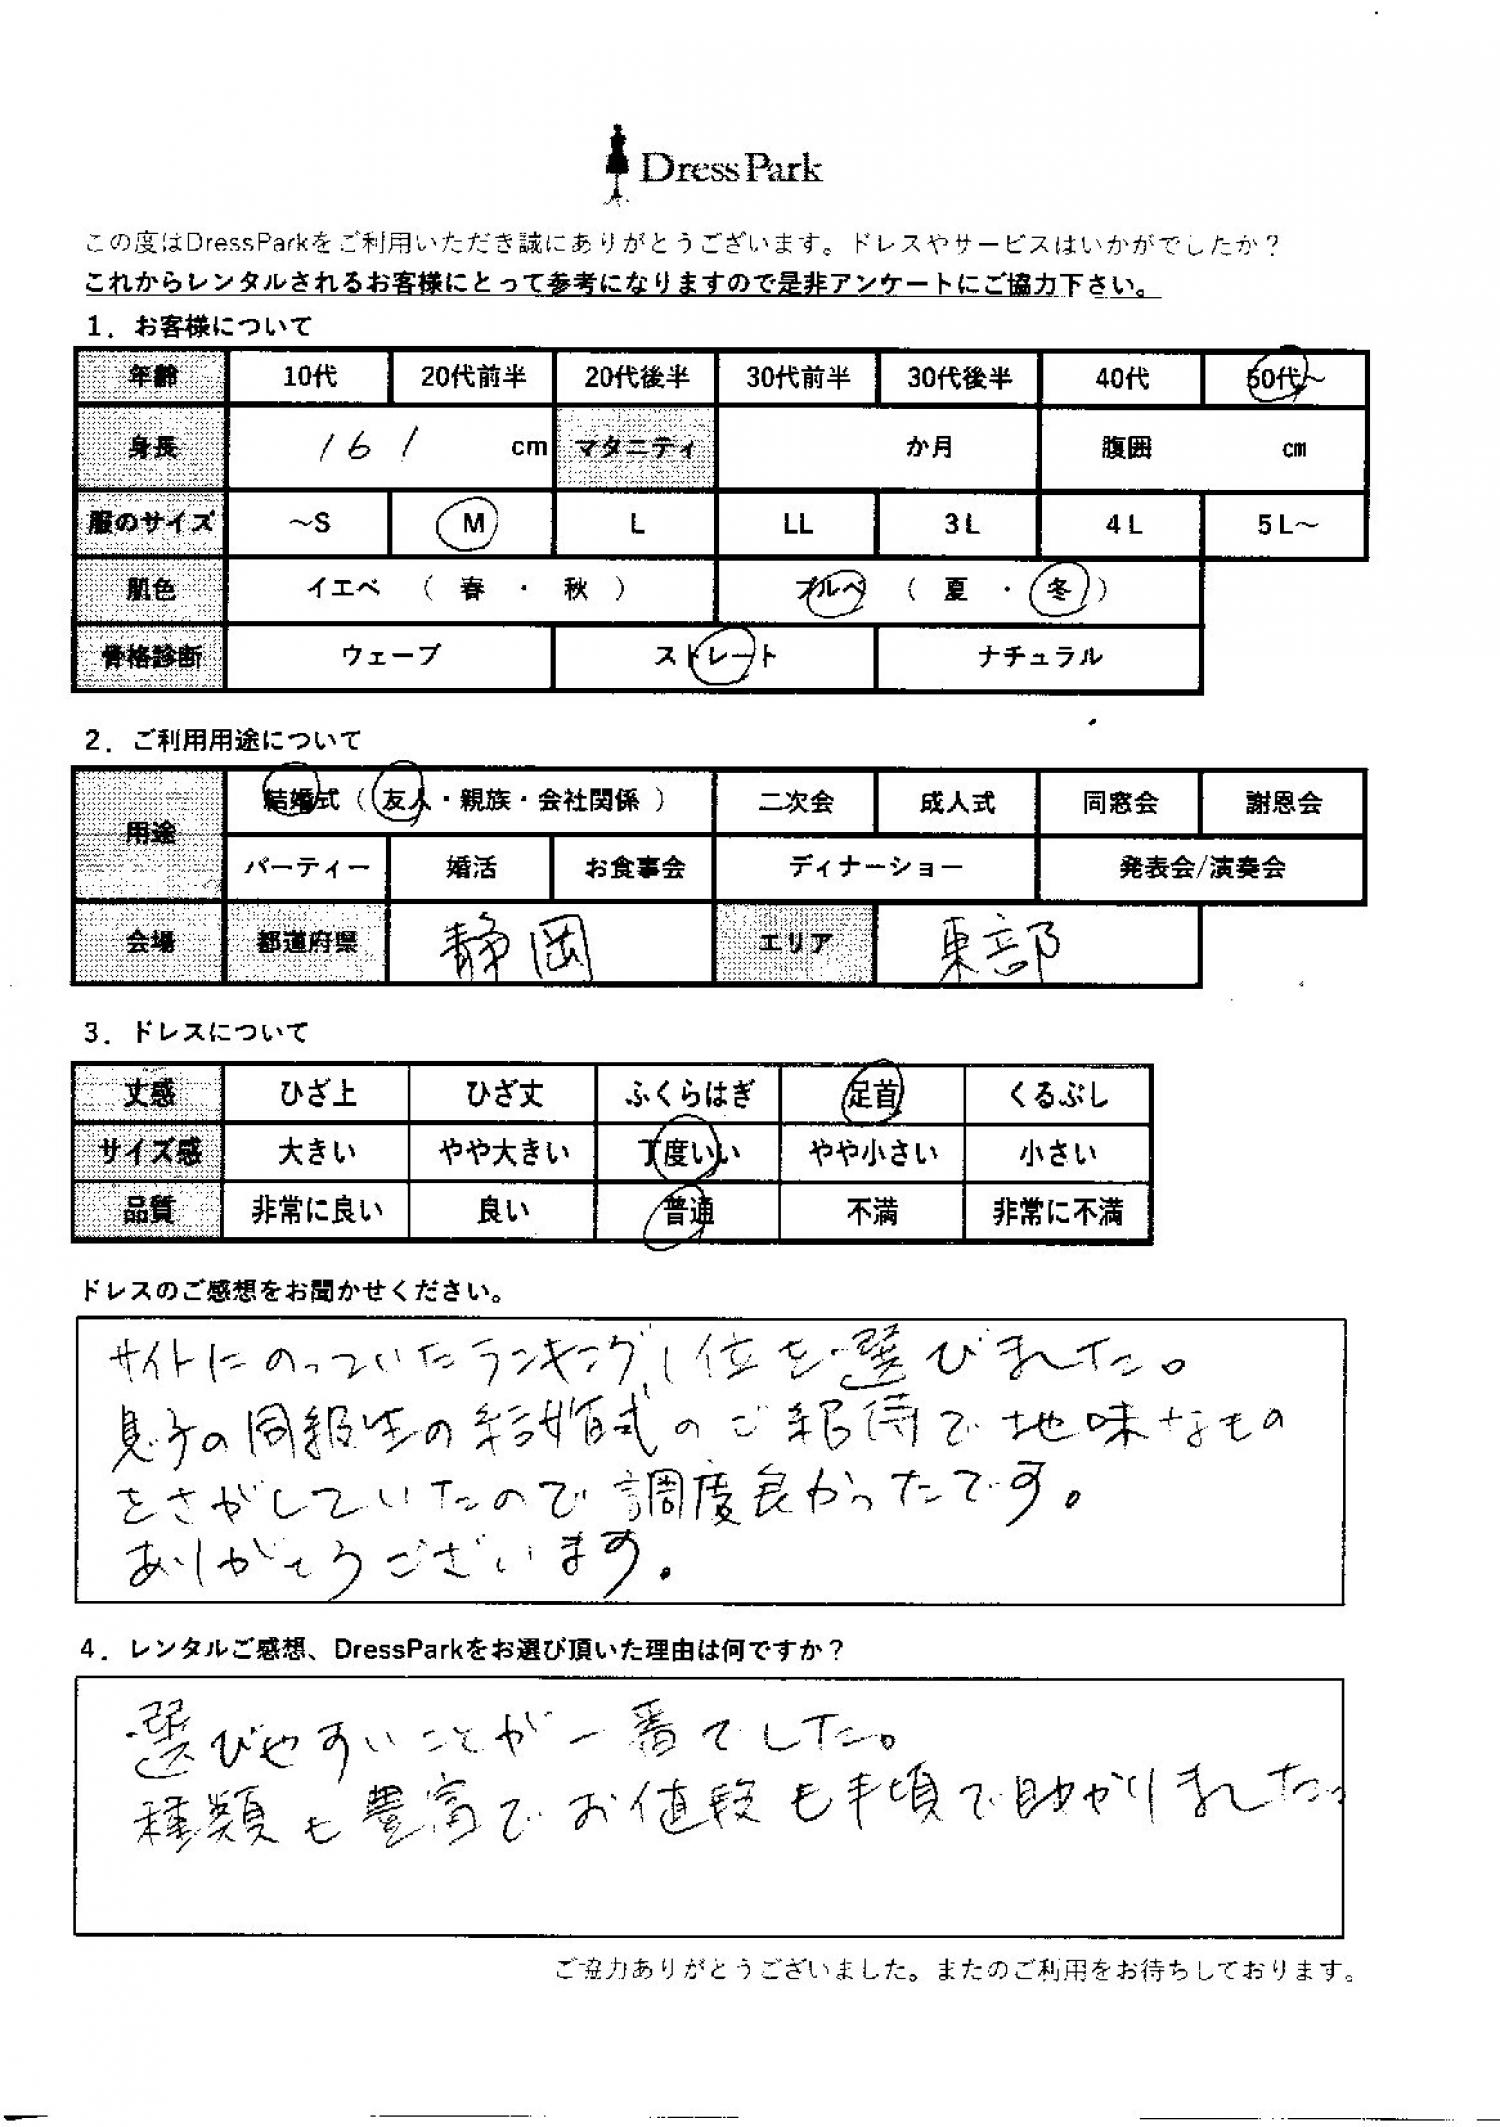 DressPark
この度はDressParkをご利用いただき誠にありがとうございます。ドレスやサービスはいかがでしたか？
これからレンタルされるお客様にとって参考になりますので是非アンケートにご協力下さい。
1．お客様について
年齢 10代 20代前半 20代後半 30代前半 30代後半 40代 50代～
身長 161 cm マタニティ か月 腹囲 cm
服のサイズ ～S M L LL 3L 4L 5L～
肌色 イエベ （ 春 ・ 秋 ） ブルベ （ 夏 ・ 冬 ）
骨格診断 ウェーブ ストレート ナチュラル
2．ご利用用途について
用途 結婚式（ 友人・親族・会社関係 ） 二次会 成人式 同窓会 謝恩会
パーティー 婚活 お食事会 ディナーショー 発表会/演奏会
会場 都道府県 静岡 エリア 東部
3．ドレスについて
丈感 ひざ上 ひざ丈 ふくらはぎ 足首 くるぶし
サイズ感 大きい やや大きい 丁度いい やや小さい 小さい
品質 非常に良い 良い 普通 不満 非常に不満
ドレスのご感想をお聞かせください。
サイトにのっていたランキング1位を選びました。
息子の同級生の結婚式のご招待で地味なもの
をさがしていたので調度良かったです。
ありがとうございます。
4．レンタルご感想、DressParkをお選び頂いた理由は何ですか？
選びやすいことが一番でした。
種類も豊富でお値段も手頃で助かりました。
ご協力ありがとうございました。またのご利用をお待ちしております。